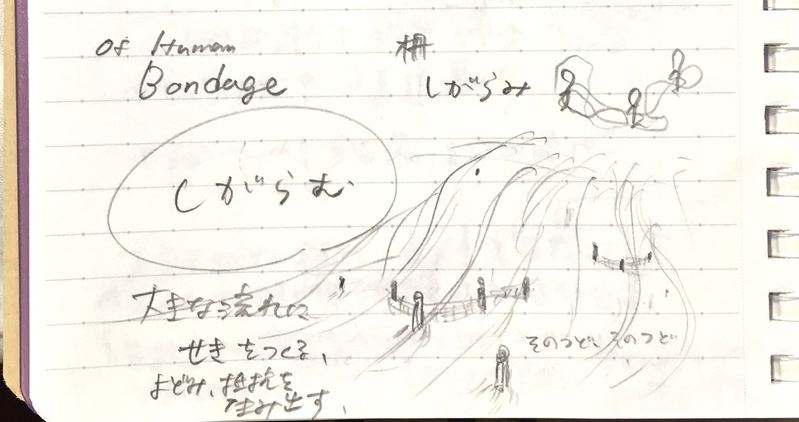 Of Human
Bondage
柵
しがらみ
しがらむ
大きな流れに
せきをつくる、
よどみ、拮抗を
生み出す、
そのつど、そのつど